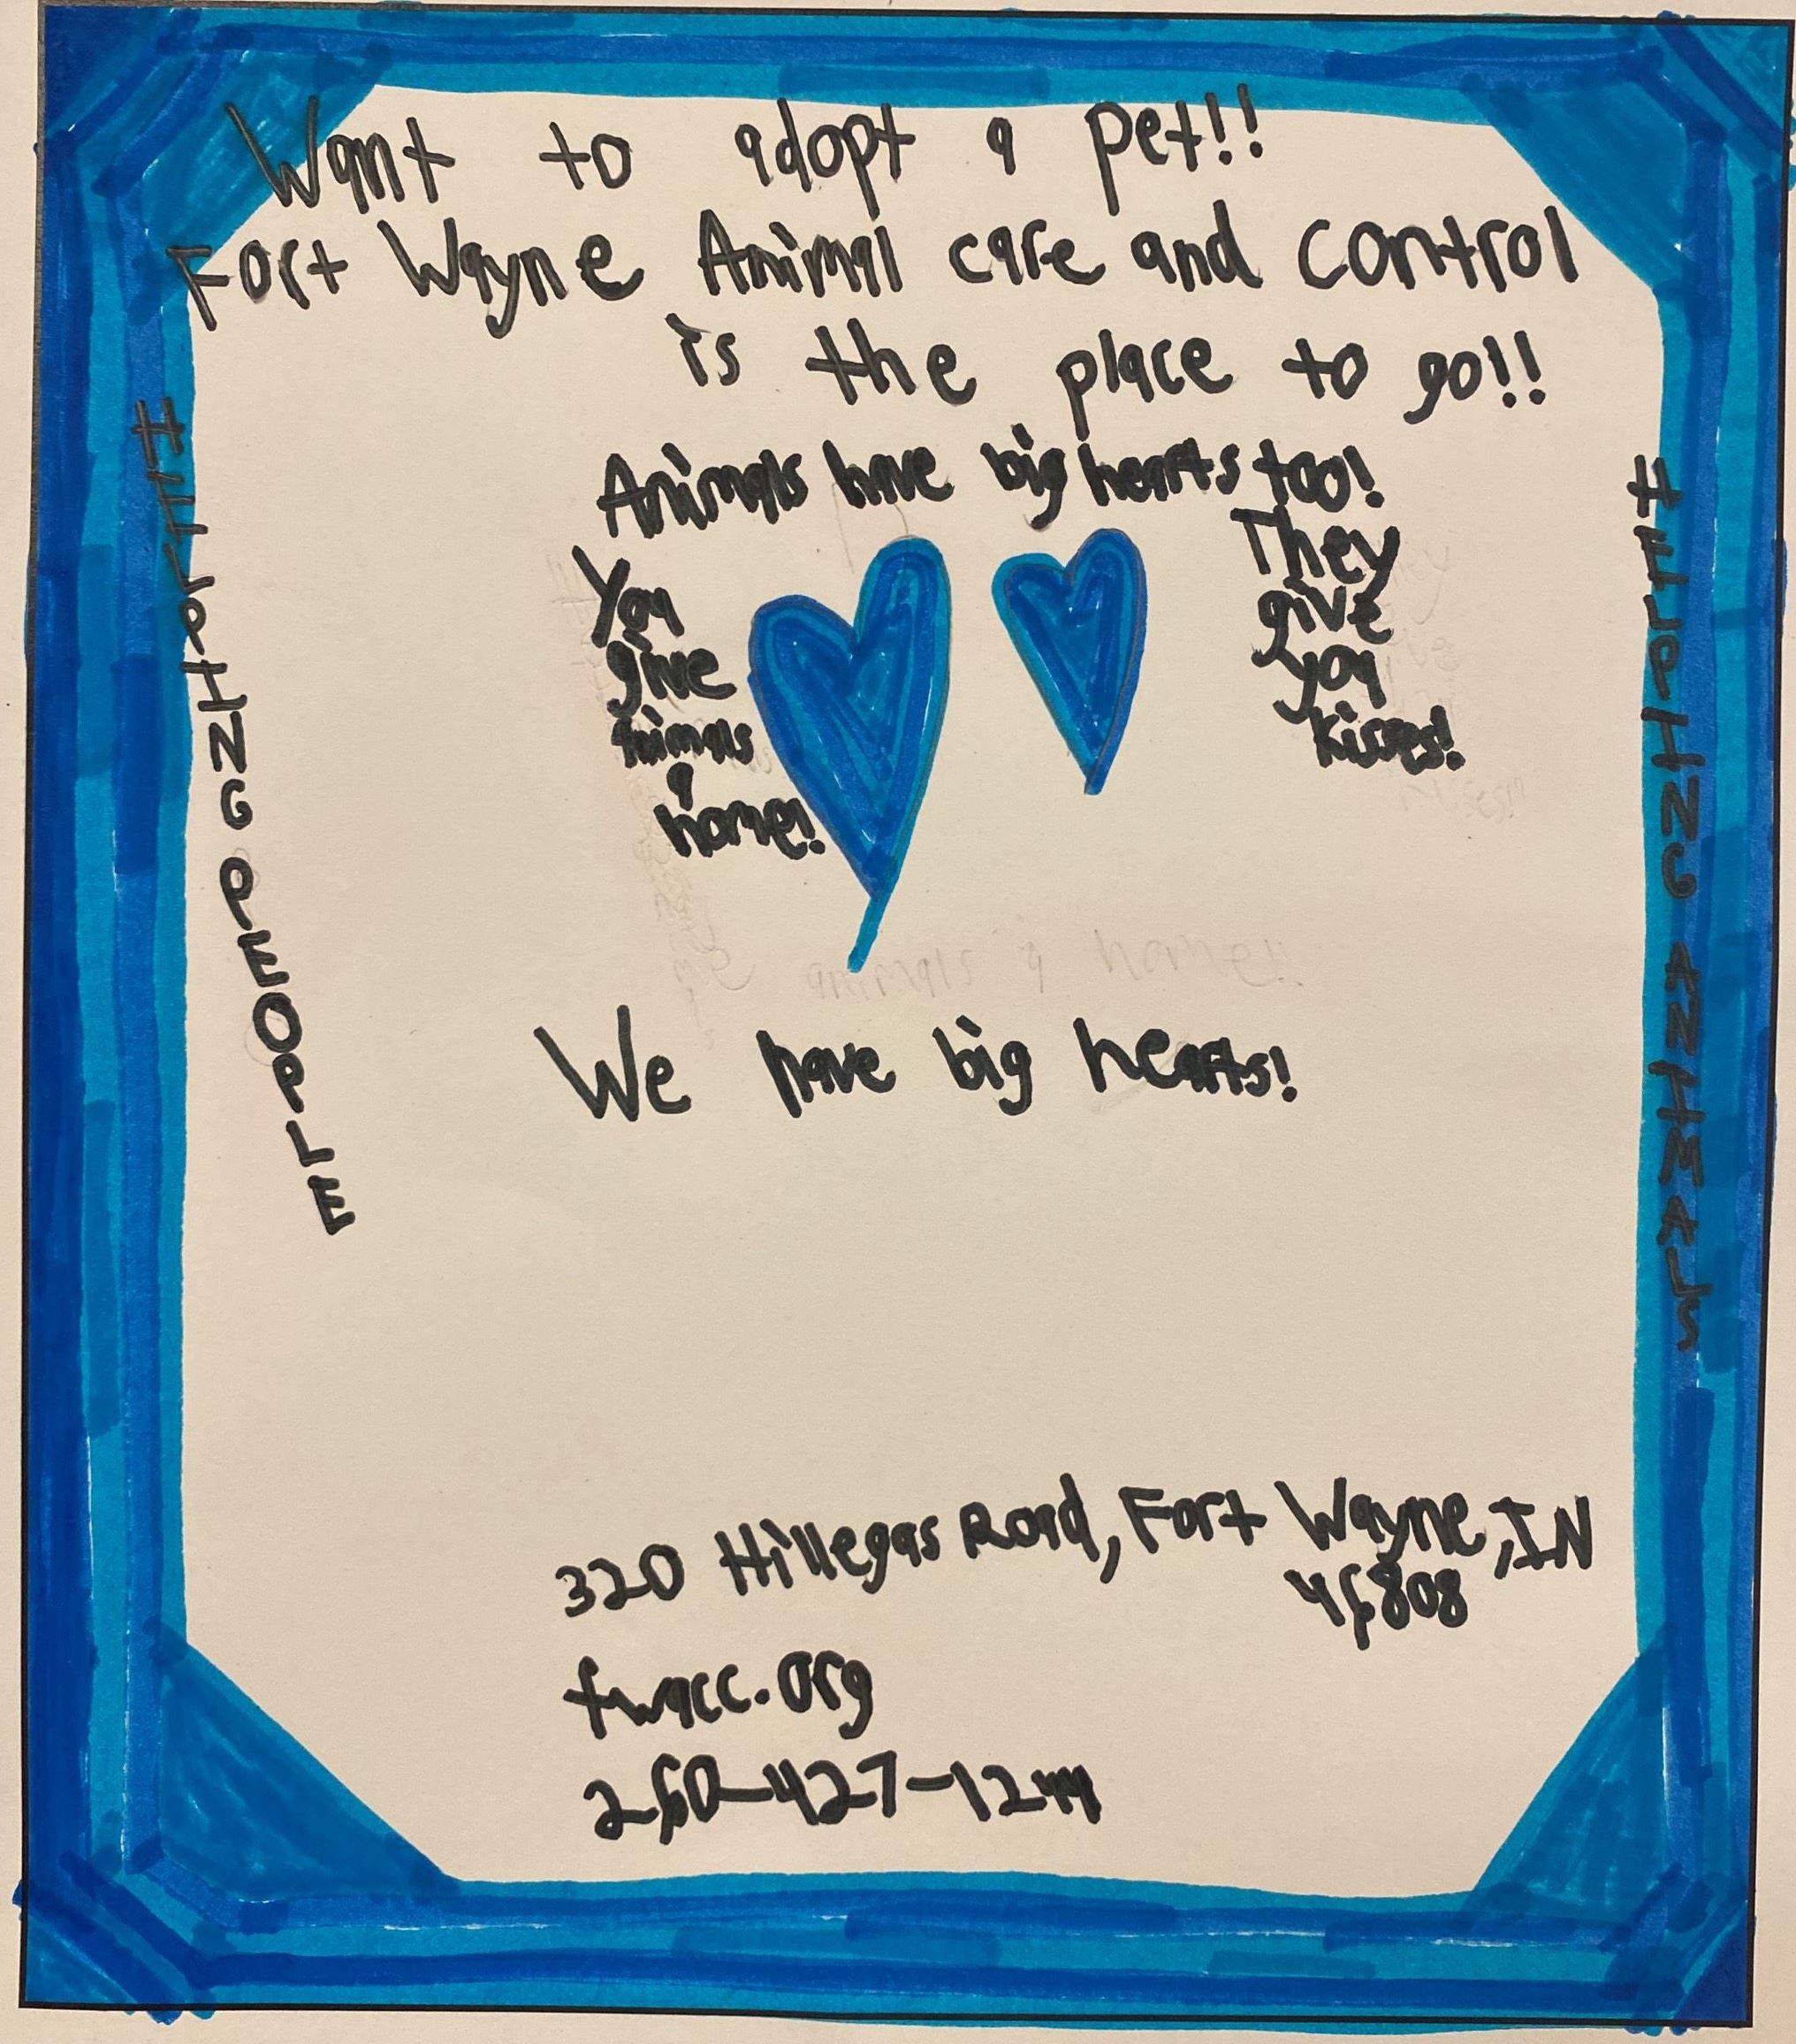 Want to adopt a pet!!
Fort Wayne Animal care and control
is the place to go!!
Animals have big hearts too!
You
give
animals
a
home!
They
give
you
kisses!
animals a home!!
We have big hearts!
HELPING PEOPLE
HELPING ANIMALS
320 Hillegas Road, Fort Wayne, IN
46808
fwacc.org
260-427-1244